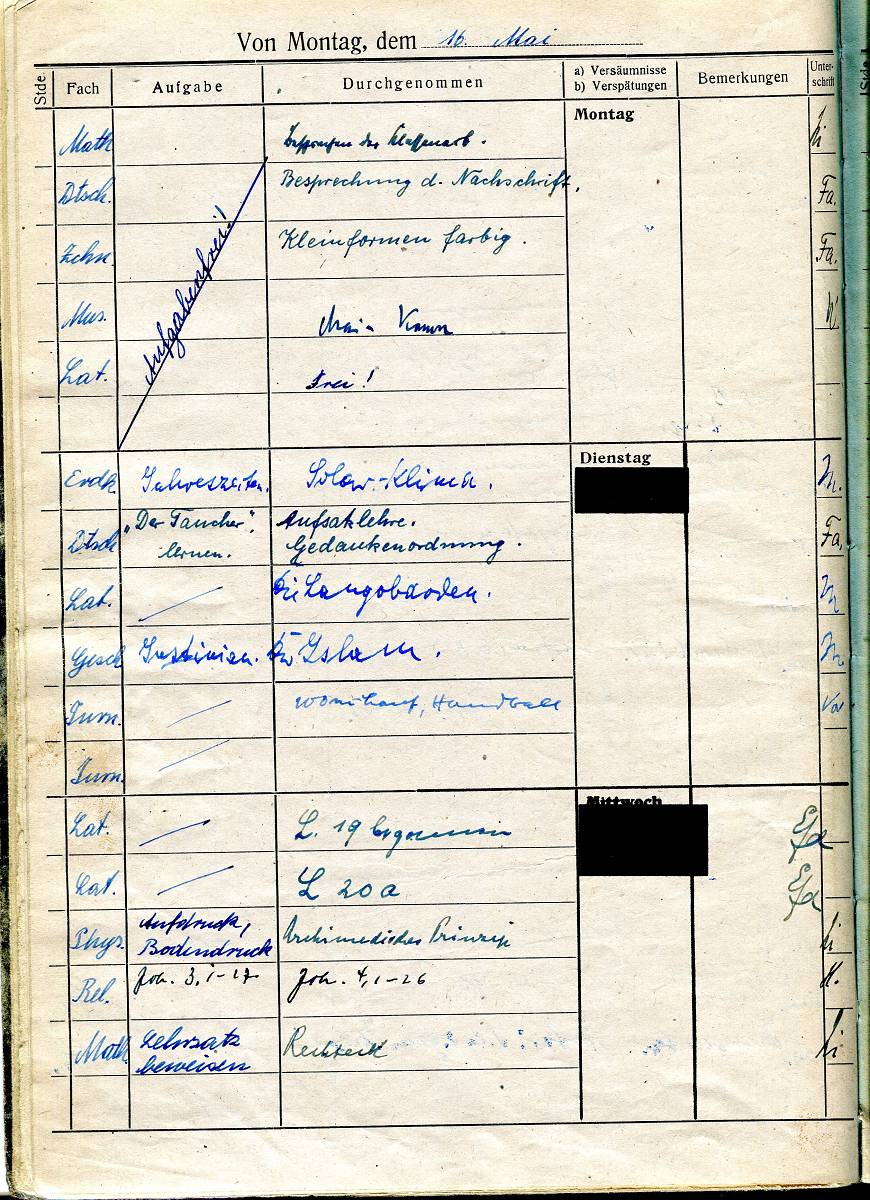 Von Montag, dem 16. Mai
Stde. Fach Aufgabe Durchgenommen a) Versäumnisse b) Verspätungen Bemerkungen Unter-schrift
Montag
Math. Besprechen der Klassenarb. Li
Dtsch. Besprechung d. Nachschrift. Fa.
Zchn. Kleinformen farbig. Fa.
Aufgabenfrei!
Mus.
Lat. Frei!
Dienstag
Erdk. Jahreszeiten. Solar-Klima.
Dtsch "Der Taucher", Aufsatzlehre. Fa.
lernen. Gedankenordnung.
Lat. Die Langobarden.
Gesch Justinian. Der Islam.
Turn. Handball
Turn.
Mittwoch
Lat. L. 19
Lat. L 20a
Phys. Aufdruck, Archimedisches Prinzip Li
Bodendruck
Rel. Joh. 3, 1-17 Joh. 4, 1-26 H.
Math. Lehrsatz Rechteck Li
beweisen